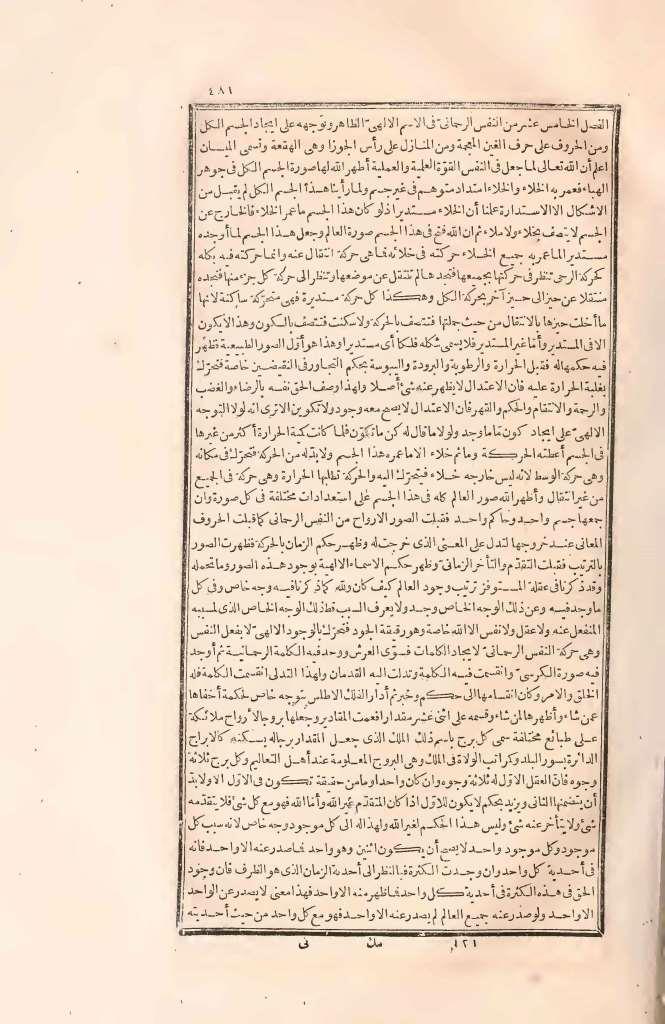 ٤٨١
الفصل الخامس عشر من النفس الرحماني في الاسم الالهي الظاهر وتوجهه على ايجاد الجسم الكل
ومن الحروف على حرف الغين المعجمة ومن المنازل على رأس الجوزا وهي الهقعة وتسمى الميسان
اعلم أن الله تعالى لما جعل في النفس القوة العلمية والعملية أظهر الله لها صورة الجسم الكل في جوهر
الهباء فعمر به الخلاء والخلاء امتداد متوهم في غير جسم ولما رأينا هذا الجسم الكل لم يقبل من
الاشكال الا الاستدارة علمنا أن الخلاء مستدير اذ لو كان هذا الجسم ما عمر الخلاء فالخارج عن
الجسم لا يتصف بخلاء ولا ملاء ثم ان الله فتح في هذا الجسم صورة العالم وجعل هذا الجسم لما أوجده
مستديرا لما عمر به جميع الخلاء حركته في خلائه فما هي حركة انتقال عنه وانما حركته فيه بكله
كحركة الرحى تنظر في حركتها بجميعها فتجدها لم تنتقل عن موضعها وتنظر الى حركة كل جزء منها فتجده
منتقلا عن حيز الى حيز آخر بحركة الكل وهكذا كل حركة مستديرة فهي متحركة ساكنة لانها
ما أخلت حيزها بالانتقال من حيث جملتها فتتصف بالحركة ولا سكنت فتتصف بالسكون وهذا لا يكون
الا في المستدير وأما غير المستدير فلا يسمى شكله فلكا أي مستديرا وهذا هو أول الصور الطبيعية فظهر
فيه حكمها له فقبل الحرارة والرطوبة والبرودة واليبوسة بحكم التجاور في النقيضين خاصة فتحرك
بغلبة الحرارة عليه فان الاعتدال لا يظهر عنه شئ أصلا ولهذا وصف الحق نفسه بالرضاء والغضب
والرحمة والانتقام والحكم والقهر فان الاعتدال لا يصح معه وجود ولا تكوين الا ترى انه لولا التوجه
الالهي على ايجاد كون ما ما وجد ولولا ما قال له كن ما تكون فلما كانت كمية الحرارة أكثر من غيرها
في الجسم أعطته الحركة وما ثم خلاء الا ما عمره هذا الجسم ولا بد له من الحركة فتحرك في مكانه
وهي حركة الوسط لانه ليس خارجه خلاء فيتحرك اليه والحركة تطلبها الحرارة وهي حركة في الجميع
من غير انتقال وأظهر الله صور العالم كله في هذا الجسم على استعدادات مختلفة في كل صورة وان
جمعها جسم واحد وحاكم واحد فقبلت الصور الارواح من النفس الرحماني كما قبلت الحروف
المعاني عند خروجها لتدل على المعنى الذي خرجت له وظهر حكم الزمان بالحركة فظهرت الصور
بالترتيب فقبلت التقدم والتأخر الزماني وظهر حكم الاسماء الالهية بوجود هذه الصور وما تحمله
وقد ذكرنا في عقلة المستوفز ترتيب وجود العالم كيف كان ولله كما ذكرنا فيه وجه خاص وفي كل
ما وجد فيه وعن ذلك الوجه الخاص وجد ولا يعرف السبب قط ذلك الوجه الخاص الذي لمسببه
المنفعل عنه ولا عقل ولا نفس الا الله خاصة وهو رقيقة الجود فتحرك بالوجود الالهي لا بفعل النفس
وهي حركة النفس الرحماني لايجاد الكلمات فسوى العرش ووحد فيه الكلمة الرحمانية ثم أوجد
فيه صورة الكرسي وانقسمت فيه الكلمة وتدلت اليه القدمان ولهذا التدلى انقسمت الكلمة فله
الخلق والامر وكان انقسامها الى حكم وخبر ثم أدار الفلك الاطلس بتوجه خاص لحكمة أخفاها
عمن شاء وأظهرها لمن شاء وقسمه على اثنى عشر مقدارا فعمت المقادير وجعلها بروجا لأرواح ملائكة
على طبائع مختلفة سمى كل برج باسم ذلك الملك الذي جعل المقدار برجا له يسكنه كالابراج
الدائرة بسور البلد وكمراتب الولاة في الملك وهي البروج المعلومة عند أهل التعاليم ولكل برج ثلاثة
وجوه فان العقل الاول له ثلاثة وجوه وان كان واحدا وما من حقيقة تكون في الاول الا ولا بد
أن يتضمنها الثاني ويزيد بحكم لا يكون للاول اذا كان المتقدم غير الله وأما الله فهو مع كل شئ فلا يتقدمه
شئ ولا يتأخر عنه شئ وليس هذا الحكم لغير الله ولهذا له الى كل موجود وجه خاص لانه سبب كل
موجود وكل موجود واحد لا يصح أن يكون اثنين وهو واحد فما صدر عنه الا واحد فانه
في أحدية كل واحد وان وجدت الكثرة فبالنظر الى أحدية الزمان الذي هو الظرف فان وجود
الحق في هذه الكثرة في أحدية كل واحد فما ظهر منه الا واحد فهذا معنى لا يصدر عن الواحد
الا واحد ولو صدر عنه جميع العالم لم يصدر عنه الا واحد فهو مع كل واحد من حيث أحديته
١٢١ مك نى